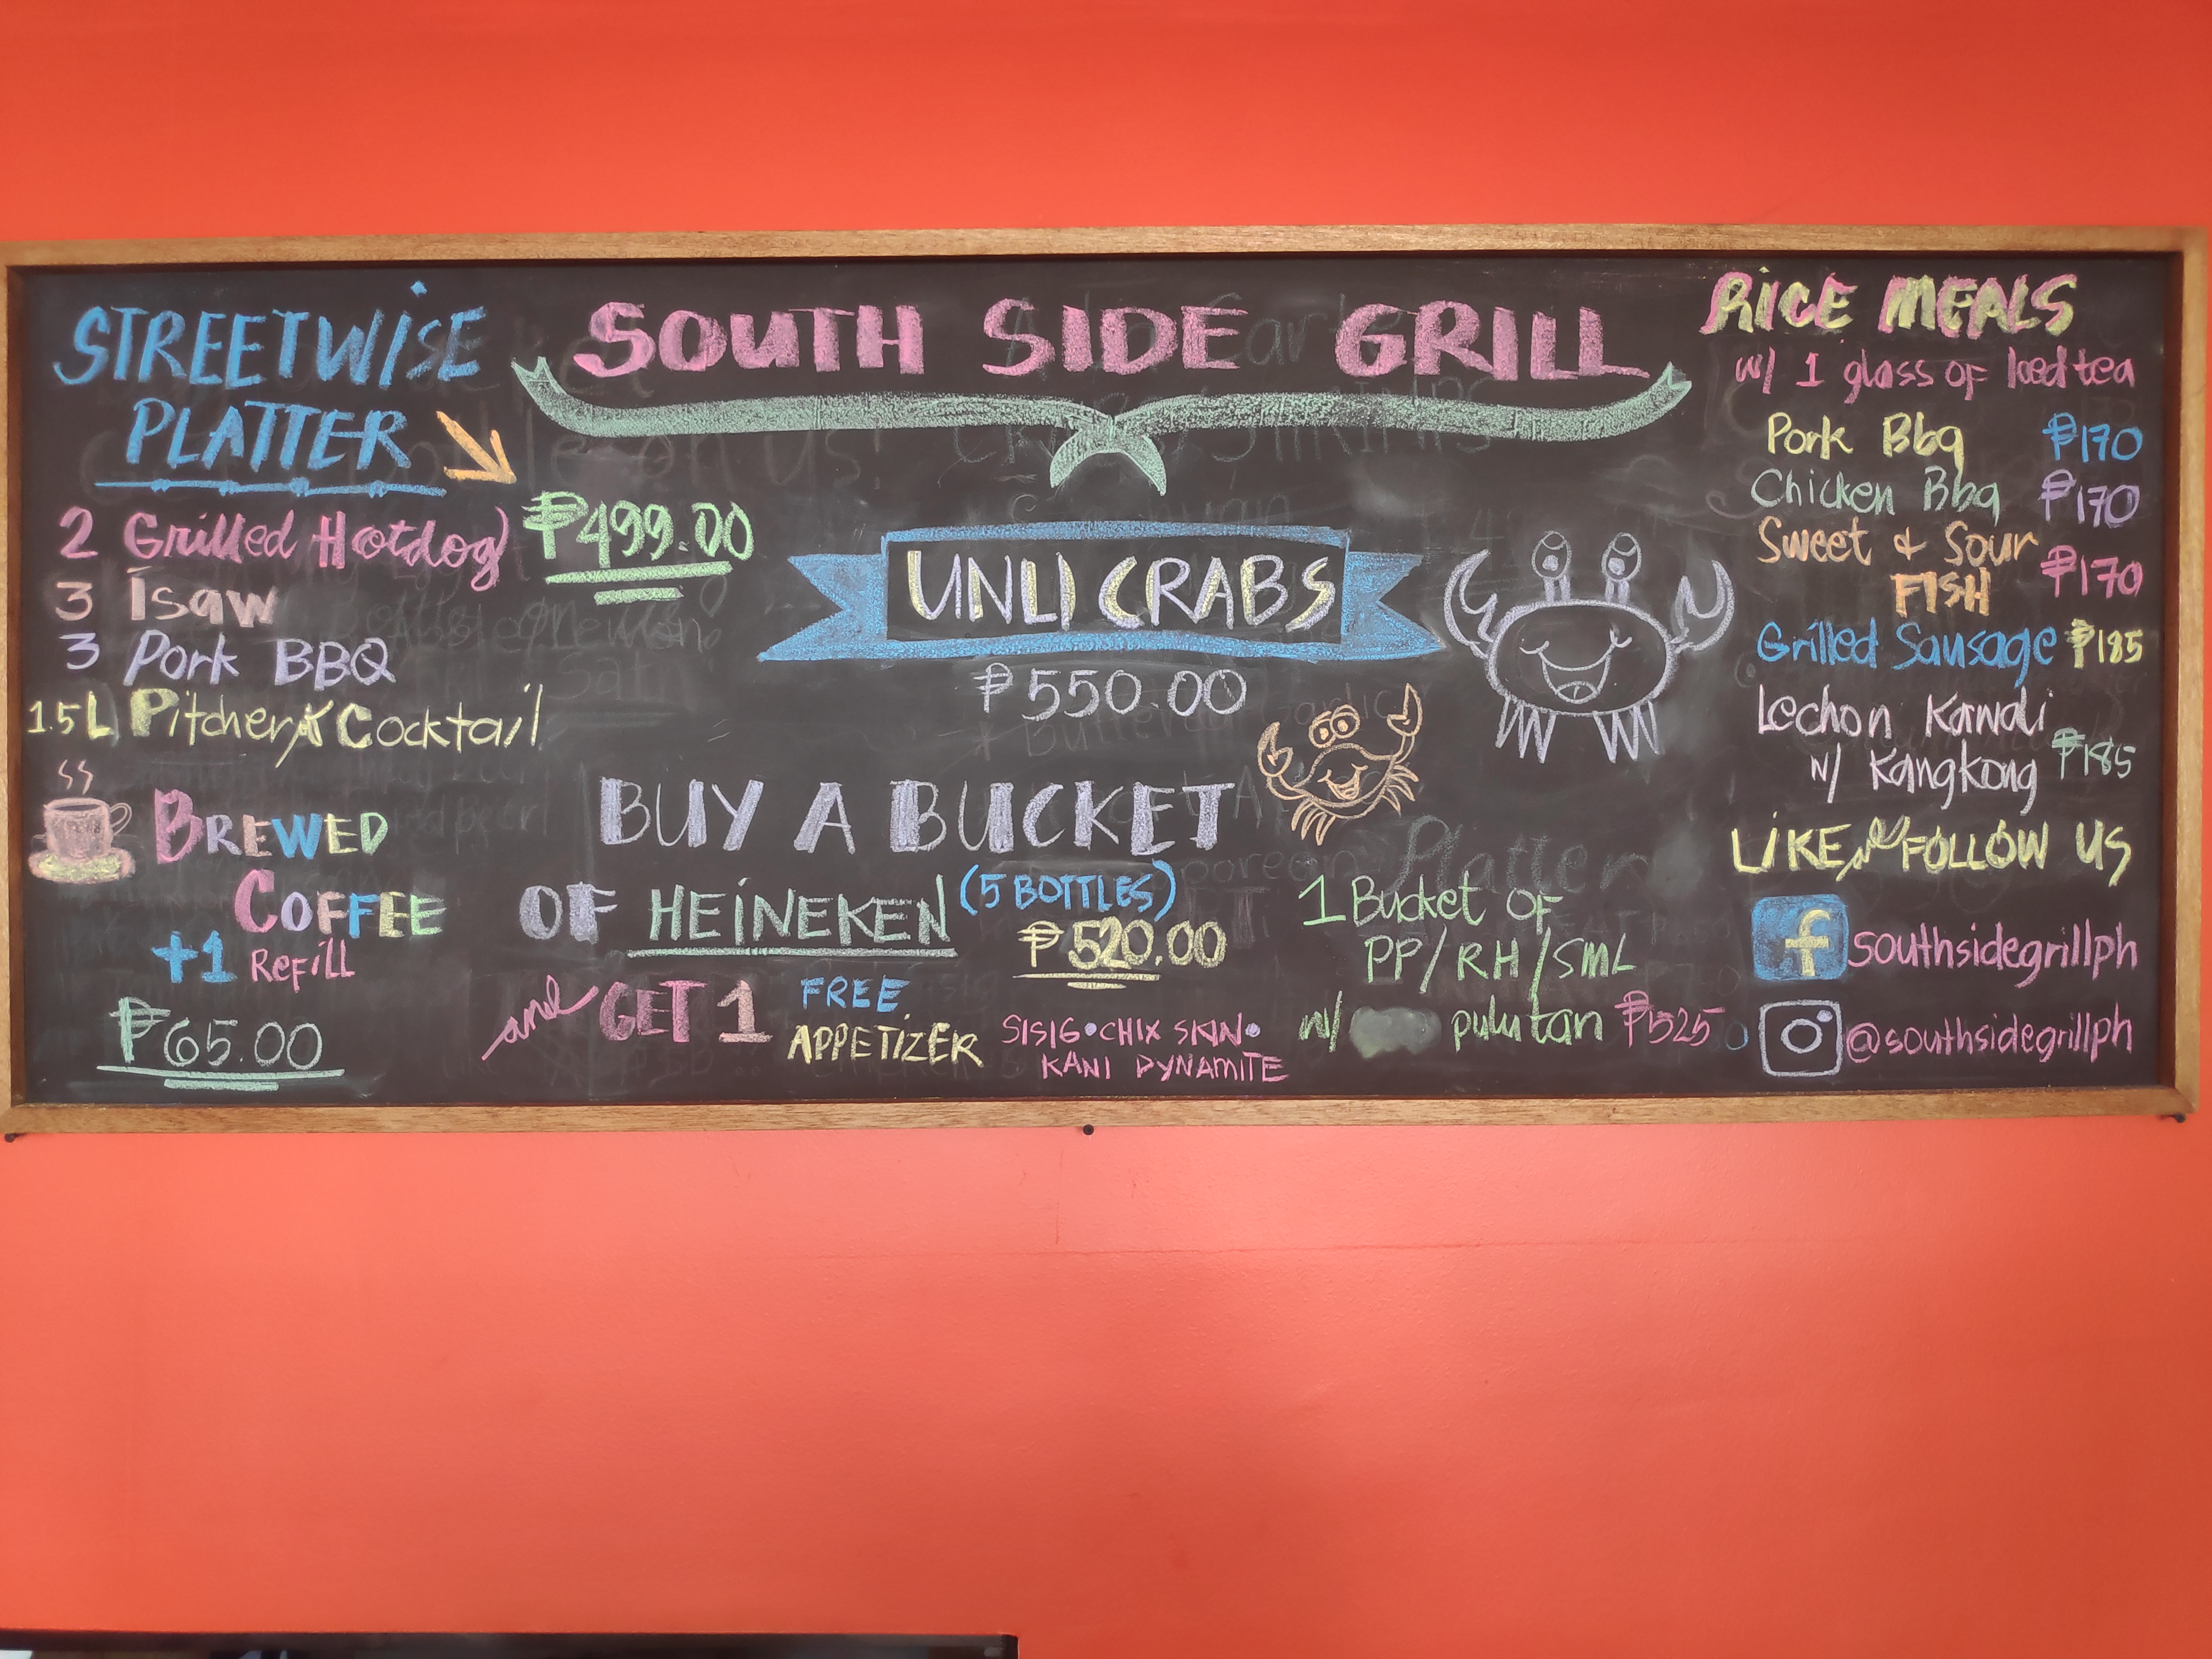 SOUTH SIDE GRILL
STREETWISE
PLATTER
₱499.00
2 Grilled Hotdog
3 Isaw
3 Pork BBQ
1.5 L Pitcher Cocktail
BREWED
COFFEE
+1 Refill
₱65.00
UNLI CRABS
₱550.00
BUY A BUCKET
OF HEINEKEN (5 BOTTLES)
₱520.00
and GET 1 FREE
APPETIZER
SISIG • CHIX SKIN •
KANI DYNAMITE
1 Bucket OF
PP/RH/SML
w/ pulutan ₱525
RICE MEALS
w/ 1 glass OF Iced tea
Pork Bbq ₱170
Chicken Bbq ₱170
Sweet & Sour
FISH ₱170
Grilled Sausage ₱185
Lechon Kawali
w/ Kangkong ₱185
LIKE and FOLLOW US
f southsidegrillph
@southsidegrillph